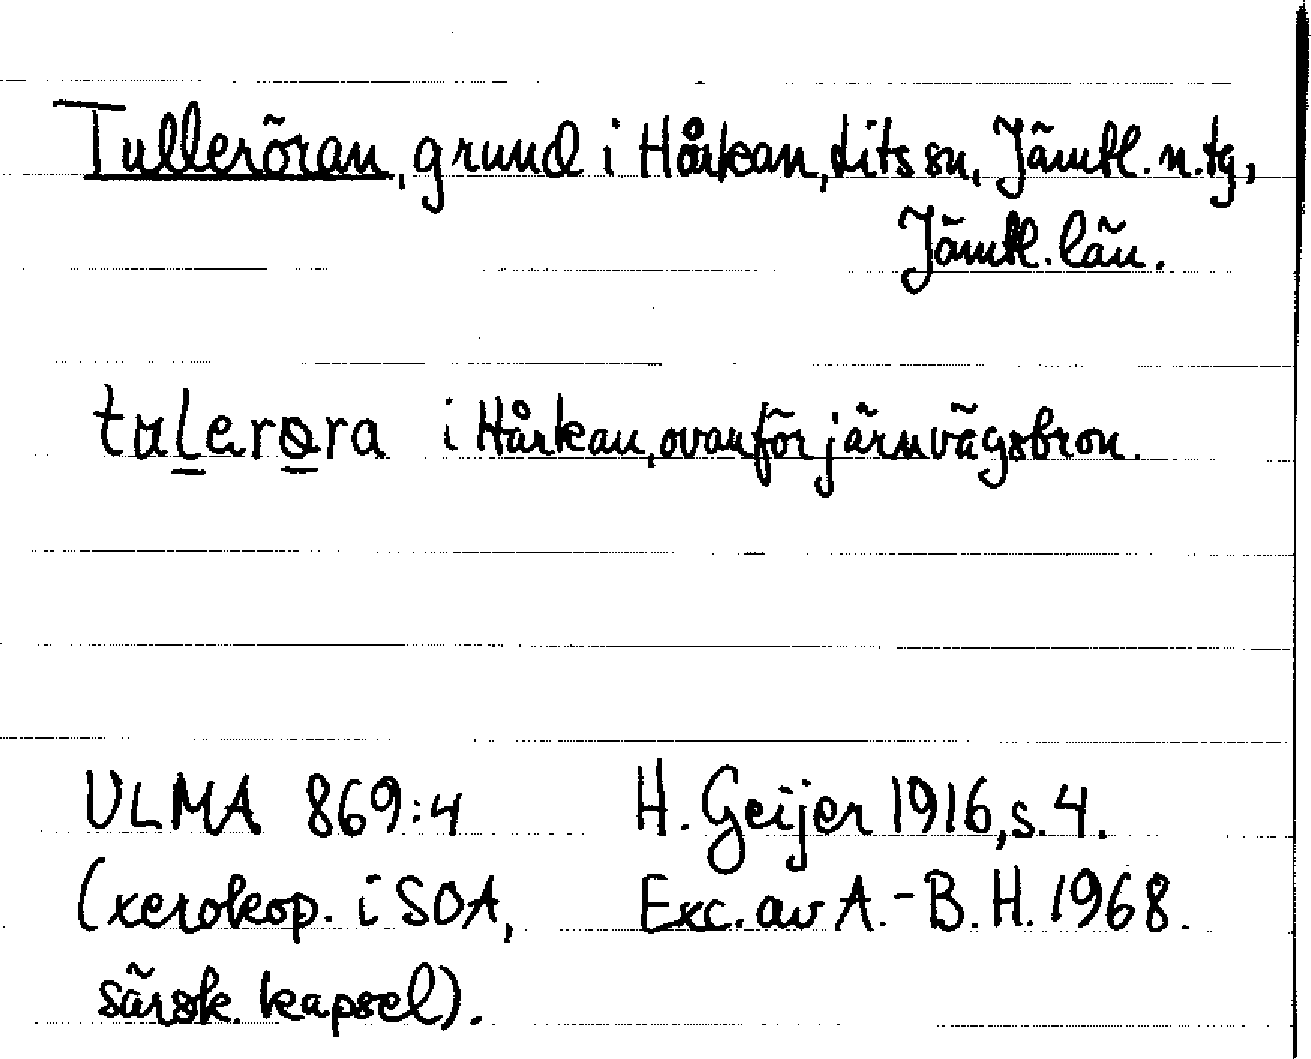 Tulleröran, grund i Hårkan, Lits sn, Jämtl. n. tg,
Jämtl. län.
tulerora i Hårkan, ovanför järnvägsbron.
ULMA 869:4 H. Geijer 1916, s. 4.
(xerokop. i SOA, Exc. av A.-B. H. 1968.
särsk. kapsel).